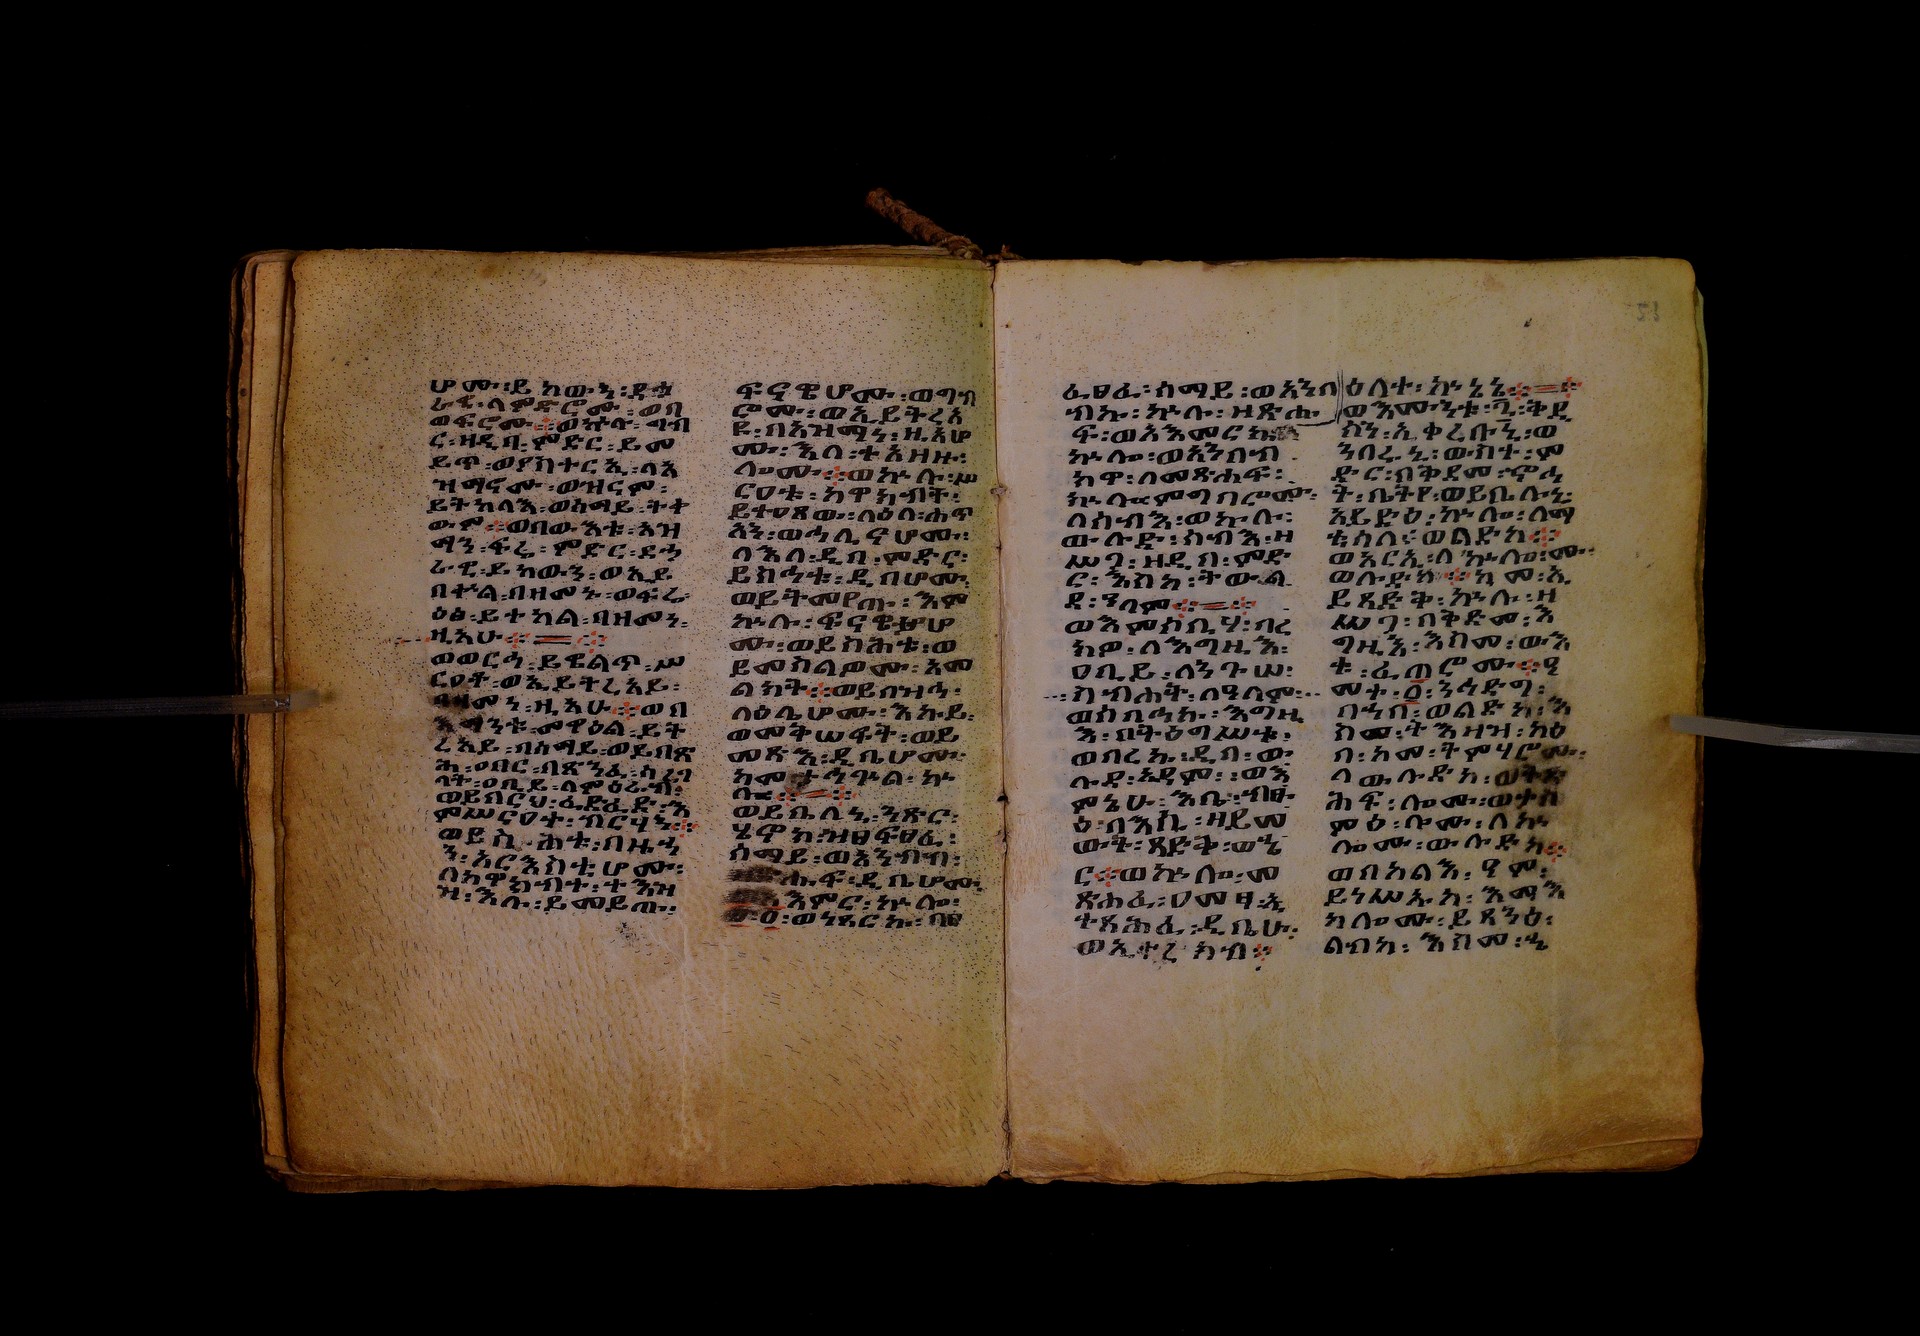 ሆሙ፡ይከውን፡ደኃ
ራዊ፡ላምድሮሙ፡ወበ
ወፍሮሙ፨ወኵሉ፡ግብ
ር፡ዘዲበ፡ምድር፡ይመ
ይጥ፡ወየስተርኢ፡ላእ
ዝማኖሙ፡ወዝናም፡
ይትከላእ፡ወሰማይ፡ትቀ
ውም፨ወበውእቱ፡አዝ
ማን፡ፍሬ፡ምድር፡ደኃ
ራዊ፡ይከውን፡ወኢይ
በቍል፡በዘመኑ፡ወፍሬ፡
ዕፅ፡ይትከል፡በዘመኑ፡
ዚአሁ፨=፨
ወወርኅ፡ይዌልጥ፡ሥ
ርዐቶ፡ወኢይትረአይ፡
በዘመኑ፡ዚአሁ፨ወበ
እማንቱ፡መዋዕል፡ይት
ረአይ፡በሰማይ፡ወይበጽ
ሕ፡ዐበር፡በጽንፈ፡ሰረገ
ላት፡ዐቢይ፡ላምዕራብ፡
ወይበርህ፡ፈድፈደ፡እ
ምሥርዐተ፡ብርሃን፨
ወይስሕቱ፡በዙኃ
ን፡አርእስቲሆሙ፡
ለከዋክብተ፡ትእዛ
ዝ፡እሉ፡ይመይጡ፡
ፍናዌሆሙ፡ወግብ
ሮሙ፡ወኢይትረአ
ዩ፡በአዝማነ፡ዚአሆ
ሙ፡እለ፡ተአዘዙ፡
ሎሙ፨ወኵሉ፡ሥ
ርዐቱ፡ከዋክብት፡
ይተዐጸው፡ላዕለ፡ሐጥ
አን፡ወሓሊናሆሙ፡
ለእለ፡ዲበ፡ምድር፡
ይስኅቱ፡ዲበሆሙ፡
ወይትመየጡ፡እም
ኵሉ፡ፍናዊሆ
ሙ፡ወይስሕቱ፡ወ
ይመስልዎሙ፡አመ
ልክት፨ወይበዝኅ፡
ላዕሌሆሙ፡እኩይ፡
ወመቅሠፍት፡ወይ
መጽእ፡ዲቤሆሙ፡
ከመ፡ኅጕል፡ኵ
ሎ፨=፨
ወይቤለኒ፡ነጽር፡
ሄኖክ፡ዝፀፍፀፈ፡
ሰማይ፡ወአንብብ፡
ሐፍ፡ዲቤሆሙ፡
እምር፡ኵሎ፡
፩፡፩፡ወነጸርኩ፡በፀ
ፈፀፈ፡ሰማይ፡ወአንበ
ብኩ፡ኵሉ፡ዘጽሑ
ፍ፡ወአእመርኩ፡
ኵሎ፡ወአንበብ
ክዋ፡ለመጽሐፍ፡
ኵሎ፡ምግባሮሙ፡
ለሰብእ፡ወኵሉ፡
ውሉደ፡ሰብእ፡ዘ
ሥጋ፡ዘዲበ፡ምድ
ር፡እስከ፡ትውል
ደ፡ዓለም፨=፨
ወእምከቤሃ፡ባረ
ክዎ፡ለእግዚእ፡
ዐቢይ፡ለንጉሠ፡
ስብሐት፡ለዓለም፡
ወሰባሕኩ፡እግዚ
እ፡በትዕግሥቱ፡
ወባረኩ፡ዲበ፡ው
ሉደ፡አዳም፡ወእ
ምኔሁ፡እቤ፡ብፀ
ዕ፡ብእሲ፡ዘይመ
ውት፡ጻድቅ፡ወኄ
ር፨ወኵሎ፡መ
ጽሐፈ፡ዐመፃ፡ኢ
ተጽሕፈ፡ዲቤሁ፡
ወኢተረክብ፨
ዕለተ፡ኵነኔ፨=፨
ወእሙንቱ፡፫፡ቅዱ
ሳን፡አቅረቡኒ፡ወ
ንበሩኒ፡ውስተ፡ም
ድር፡በቅድመ፡ኆኅ
ት፡ቤትየ፡ወይቤሉኒ፡
አይድዕ፡ኵሎ፡ለማ
ቱሳላ፡ወልድከ፨
ወአርኢ፡ለኵሎሙ፡
ውሉድከ፨ከመ፡ኢ
ይጸድቅ፡ኵሉ፡ዘ
ሥጋ፡በቅድመ፡እ
ግዚእ፡እስመ፡ውእ
ቱ፡ፈጠሮሙ፨ዓ
መተ፡፩፡ንኅድግ፡
በኀበ፡ወልድከ፡እ
ስመ፡ትእዛዝ፡ከዕ
በ፡አመ፡ትምሃሮሙ፡
ለውሉድከ፡
ሕፍ፡ሎሙ፡
ምዕ፡ሎሙ፡ለኵ
ሎሙ፡ውሉድከ፨
ወበካልእ፡ዓም፡
ይነሥኡከ፡እማእ
ከሎሙ፡ይጸንዕ፡
ልብከ፡እስመ፡ኄ